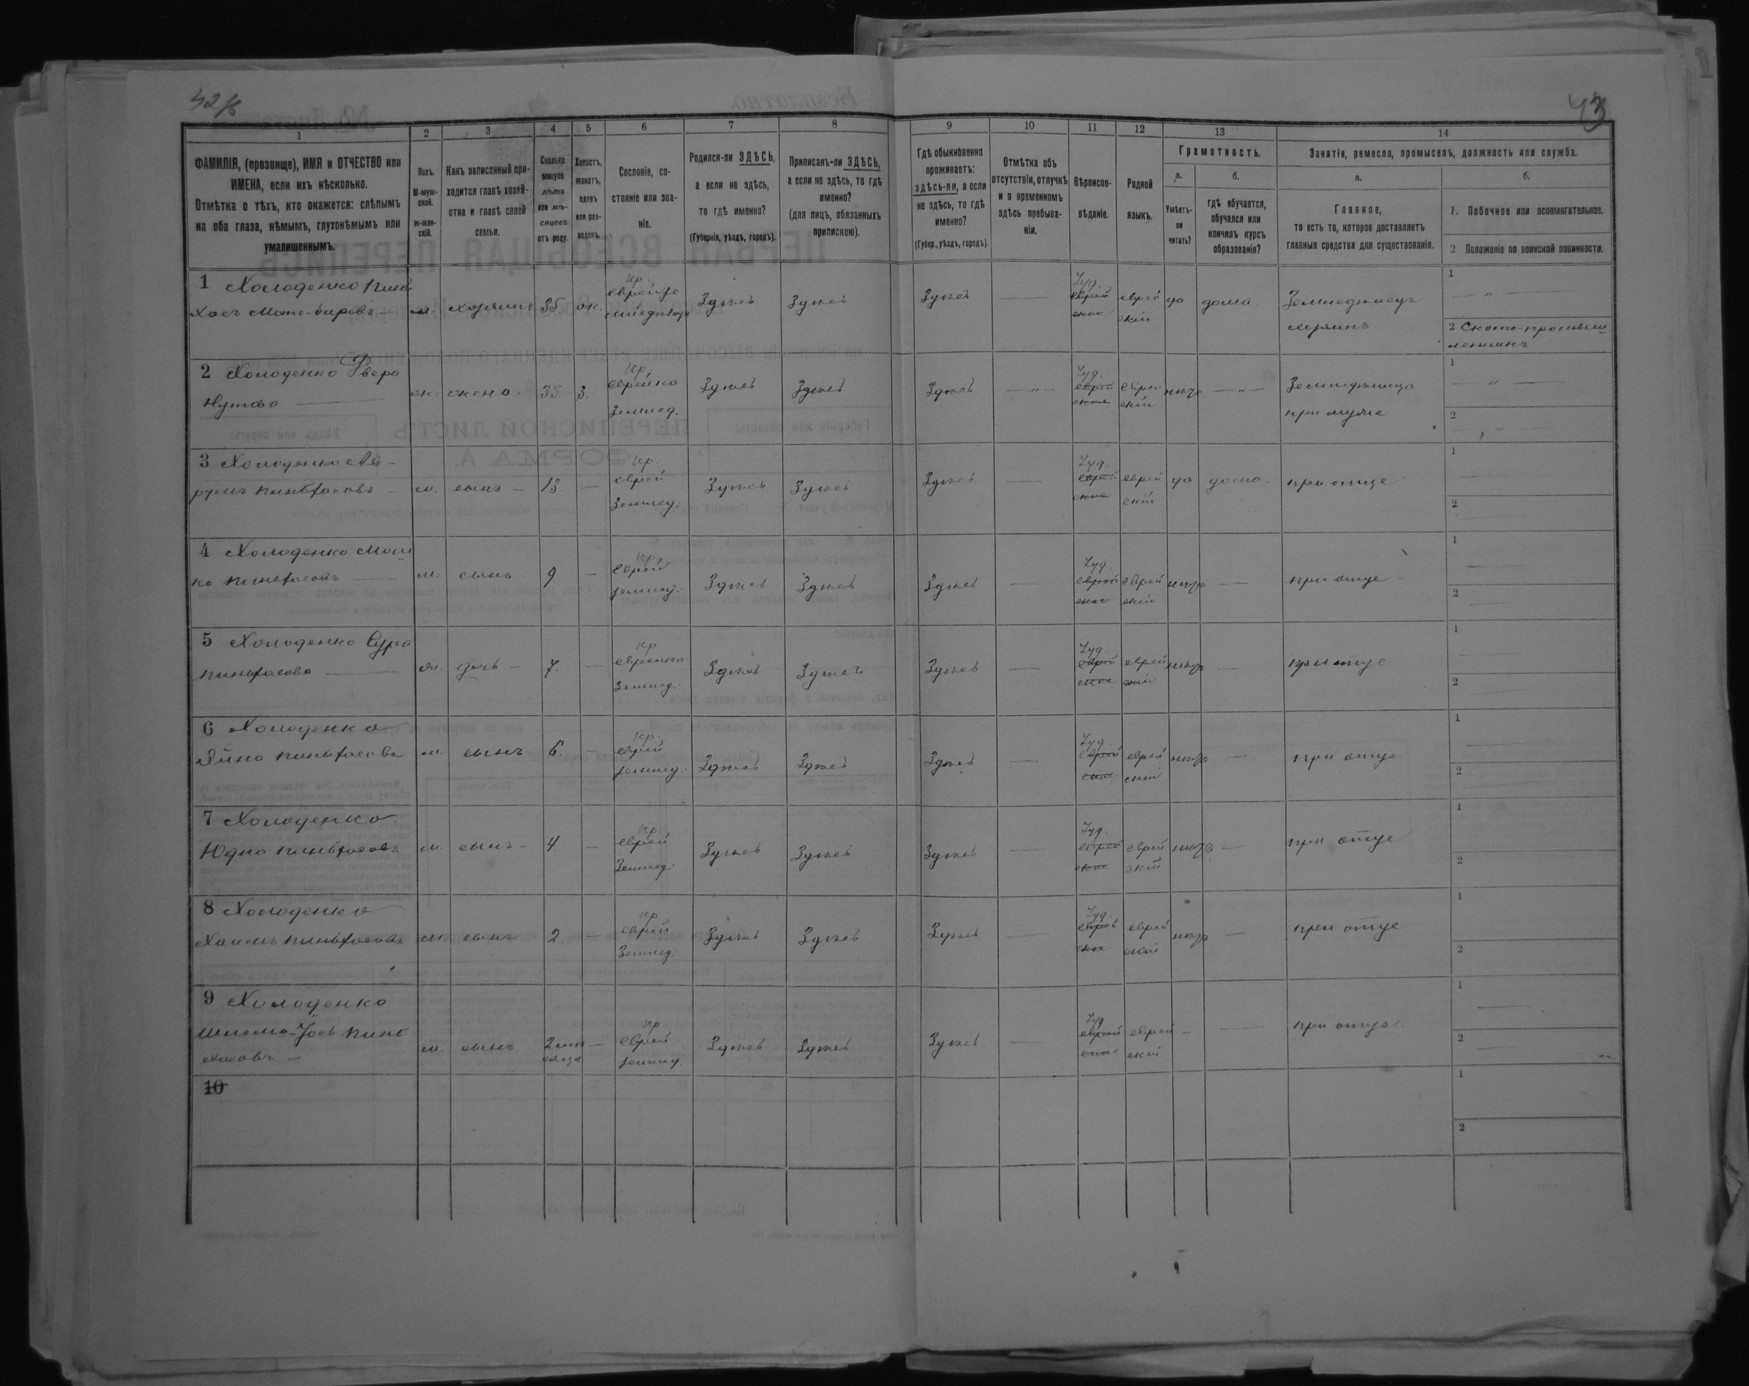 42/6
43
1 2 3 4 5 6 7 8 9 10 11 12 13 14
ФАМИЛІЯ, (прозвище), ИМЯ и ОТЧЕСТВО или
ИМЕНА, если ихъ нѣсколько.
Отмѣтка о тѣхъ, кто окажется: слѣпымъ
на оба глаза, нѣмымъ, глухонѣмымъ или
умалишеннымъ.
Полъ.
М-муж-
ской.
Ж-жен-
скій.
Какъ записанный при-
ходится главѣ хозяй-
ства и главѣ своей
семьи.
Сколько
минуло
лѣтъ
или мѣ-
сяцевъ
отъ роду.
Холостъ,
женатъ,
вдовъ
или раз-
веденъ.
Сословіе, со-
стояніе или зва-
ніе.
Родился-ли ЗДѢСЬ,
а если не здѣсь,
то гдѣ именно?
(Губернія, уѣздъ, городъ).
Приписанъ-ли ЗДѢСЬ,
а если не здѣсь, то гдѣ
именно?
(для лицъ, обязанныхъ
припискою).
Гдѣ обыкновенно
проживаетъ:
здѣсь-ли, а если
не здѣсь, то гдѣ
именно?
(Губер., уѣздъ, городъ).
Отмѣтка объ
отсутствіи, отлучкѣ
и о временномъ
здѣсь пребыва-
ніи.
Вѣроиспо-
вѣданіе.
Родной
языкъ.
Грамотность.
а.
Умѣетъ-
ли
читать?
б.
гдѣ обучается,
обучался или
кончилъ курсъ
образованія?
Занятіе, ремесло, промыселъ, должность или служба.
а.
Главное,
то есть то, которое доставляетъ
главныя средства для существованія.
б.
1. Побочное или вспомогательное.
2 Положеніе по воинской повинности.
1 Холоденко Пинь
хасъ Мота-Берова м. хозяинъ 35 ж. кр. еврей Здѣсь Здѣсь Здѣсь — Іуд. еврей
скій да дома. Земледѣлецъ
хозяинъ
1 — " —
2
2 Холоденко Двера
жена 33. з. кр. еврейка
Землед. Здѣсь Здѣсь Здѣсь — " — Іуд. еврей
скій — " — Земледѣлица
при мужѣ
1 — " —
2 "
3 Холоденко Ав-
румъ Пиньхасовъ м. сынъ — 13. — кр. еврей
Землед. Здѣсь Здѣсь Здѣсь — Іуд. еврей
скій да дома. при отце
1 —
2 —
4 Холоденко Мош
ко Пиньхасовъ м. сынъ 9 — кр. еврей
землед. Здѣсь Здѣсь Здѣсь — Іуд. еврей
скій — при отце
1 —
2 —
5 Холоденко Сура
Пиньхасова дочь — 7. — кр. еврейка
Землед. Здѣсь Здѣсь Здѣсь — Іуд. еврей
скій — при отце
1 —
2 —
6 Холоденко
Пиньхасовъ м. сынъ 6. — кр. еврей
землед. Здѣсь Здѣсь Здѣсь — Іуд. еврей
скій — при отце
1 —
2 —
7 Холоденко
Юдка Пиньхасовъ м. сынъ — 4 — кр. еврей
Землед. Здѣсь Здѣсь Здѣсь — Іуд. еврей
скій — при отце
1
2
8 Холоденко
Хаимъ Пиньхасовъ м. сынъ 2. — кр. еврей
Землед. Здѣсь Здѣсь Здѣсь — Іуд. еврей
скій — при отце
1
2
9 Холоденко
Шлема-Іосъ Пинь
хасовъ — м. сынъ 2 — кр. еврей
землед Здѣсь Здѣсь Здѣсь — Іуд. еврей
скій — — при отце.
1 —
2 —
10
1
2